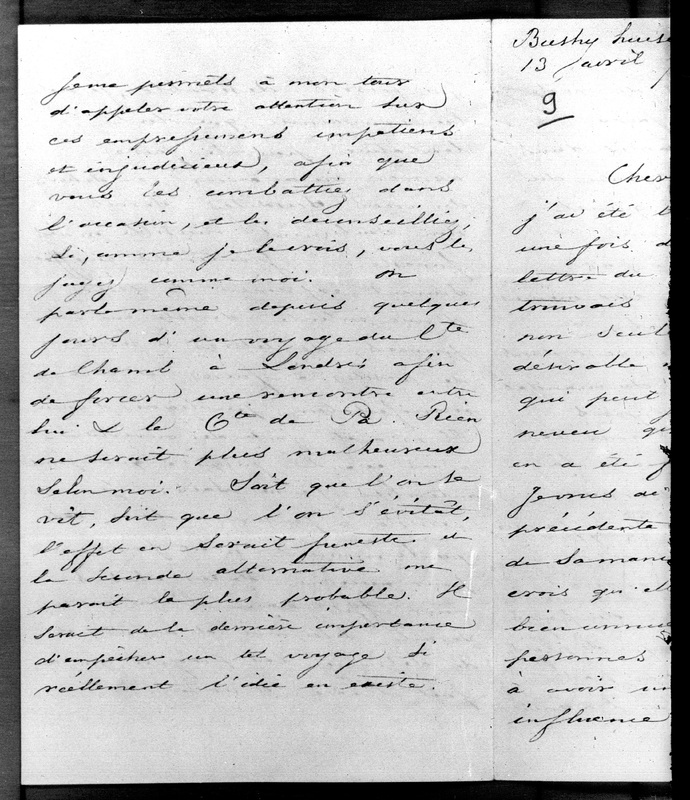 Je me permets à mon tour
d'appeler votre attention sur
ces empressemens impatiens
et injudicieux, afin que
vous les combattiez dans
l'occasion, et les déconseilliez,
si, comme je le crois, vous les
jugez comme moi. On
parle même depuis quelques
jours d'un voyage du Cte
de Chamb à Londres afin
de forcer une rencontre entre
lui & le Cte de Pa. Rien
ne serait plus malheureux
selon moi. Soit que l'on se
vît, soit que l'on s'évitât,
l'effet en serait funeste et
la seconde alternative me
parait la plus probable. Il
serait de la dernière importance
d'empêcher un tel voyage si
réellement l'idée en existe.
Bushy
13 avril
9
Cher
j'ai été
une fois d
lettre du
trouvais
non seul
désirable
qui peut
neveu qu
en a été f
Je vous ai
précédente
de Samani
crois qu'el
bien connue
personnes
à avoir un
influence